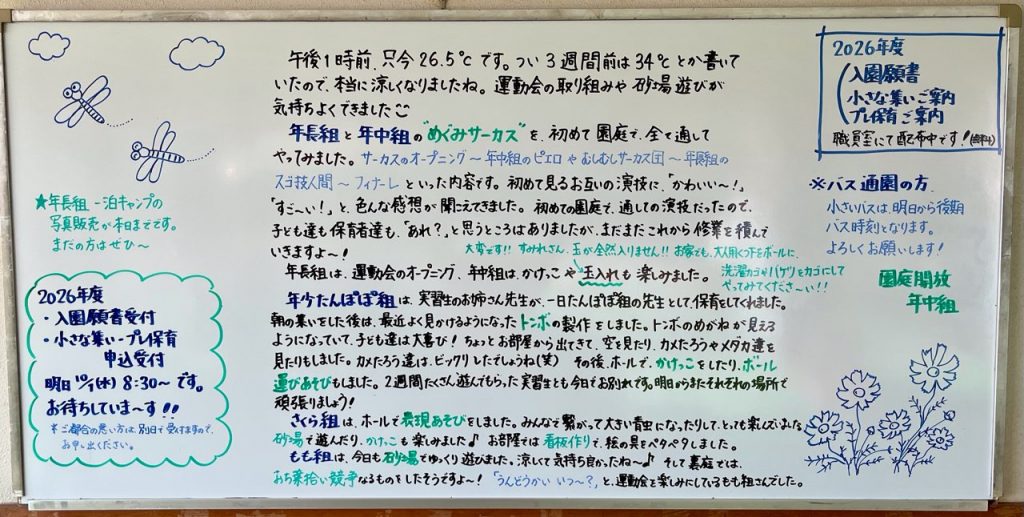 午後1時前、只今26.5℃です。つい3週間前は34℃とか書いて
いたので、本当に涼しくなりましたね。運動会の取り組みや砂場遊びが
気持ちよくできました
年長組と年中組の"めぐみサーカス"を、初めて園庭で、全て通して
やってみました。サーカスのオープニング～年中組のピエロやむしむしサーカス団～年長組の
スゴ技人間～フィナーレといった内容です。初めて見るお互いの演技に、「かわいい～！」
「すご～い！」と、色んな感想が聞こえてきました。初めての園庭で、通しての演技だったので、
子ども達も保育者達も、「あれ？」と思うところはありましたが、まだまだこれから修業を積んで
いきますよ～！
大変です!!すみれさん、玉が全然入りません!!お家でも、大人用くつ下をボールに、
洗濯カゴやバケツをカゴにして
やってみてくださ～い!!
年長組は、運動会のオープニング、年中組は、かけっこや玉入れも楽しみました。
年少たんぽぽ組は、実習生のお姉さん先生が、一日たんぽぽ組の先生として保育をしてくれました。
朝の集いをした後は、最近よく見かけるようになったトンボの製作をしました。トンボのめがねが見える
ようになっていて、子ども達は大喜び！ちょっとお部屋から出てきて、空を見たり、カメたろうやメダカ達を
見たりもしました。カメたろう達は、ビックリしたでしょうね(笑) その後、ホールで、かけっこをしたり、ボール
運びあそびもしました。2週間たくさん遊んでもらった実習生とも今日でお別れです。明日からまたそれぞれの場所で
頑張りましょう！
さくら組は、ホールで表現あそびをしました。みんなで繋がって大きい青虫になったりして、とっても楽しんでいました。
砂場で遊んだり、かけっこも楽しみました♪ お部屋では看板作りで、絵の具をペタペタしました。
もも組は、今日も砂場でゆっくり遊びました。涼しくて気持ち良かったね～♪ そして裏庭では、
おち葉拾い競争なるものをしたそうですよ～！「うんどうかい いつ～？」と、運動会を楽しみにしているもも組さんでした。
★年長組 一泊キャンプの
写真販売が本日までです。
まだの方はぜひ～
2026年度
・入園願書受付
・小さな集い・プレ保育
申込受付
明日10/1(水) 8:30～です。
お待ちしていま～す!!
＊ご都合の悪い方は、別日で受けますので、
お申し出ください。
2026年度
入園願書
小さな集いご案内
プレ保育ご案内
職員室にて配布中です！(無料)
※バス通園の方
小さいバスは、明日から後期
バス時刻となります。
よろしくお願いします！
園庭開放
年中組